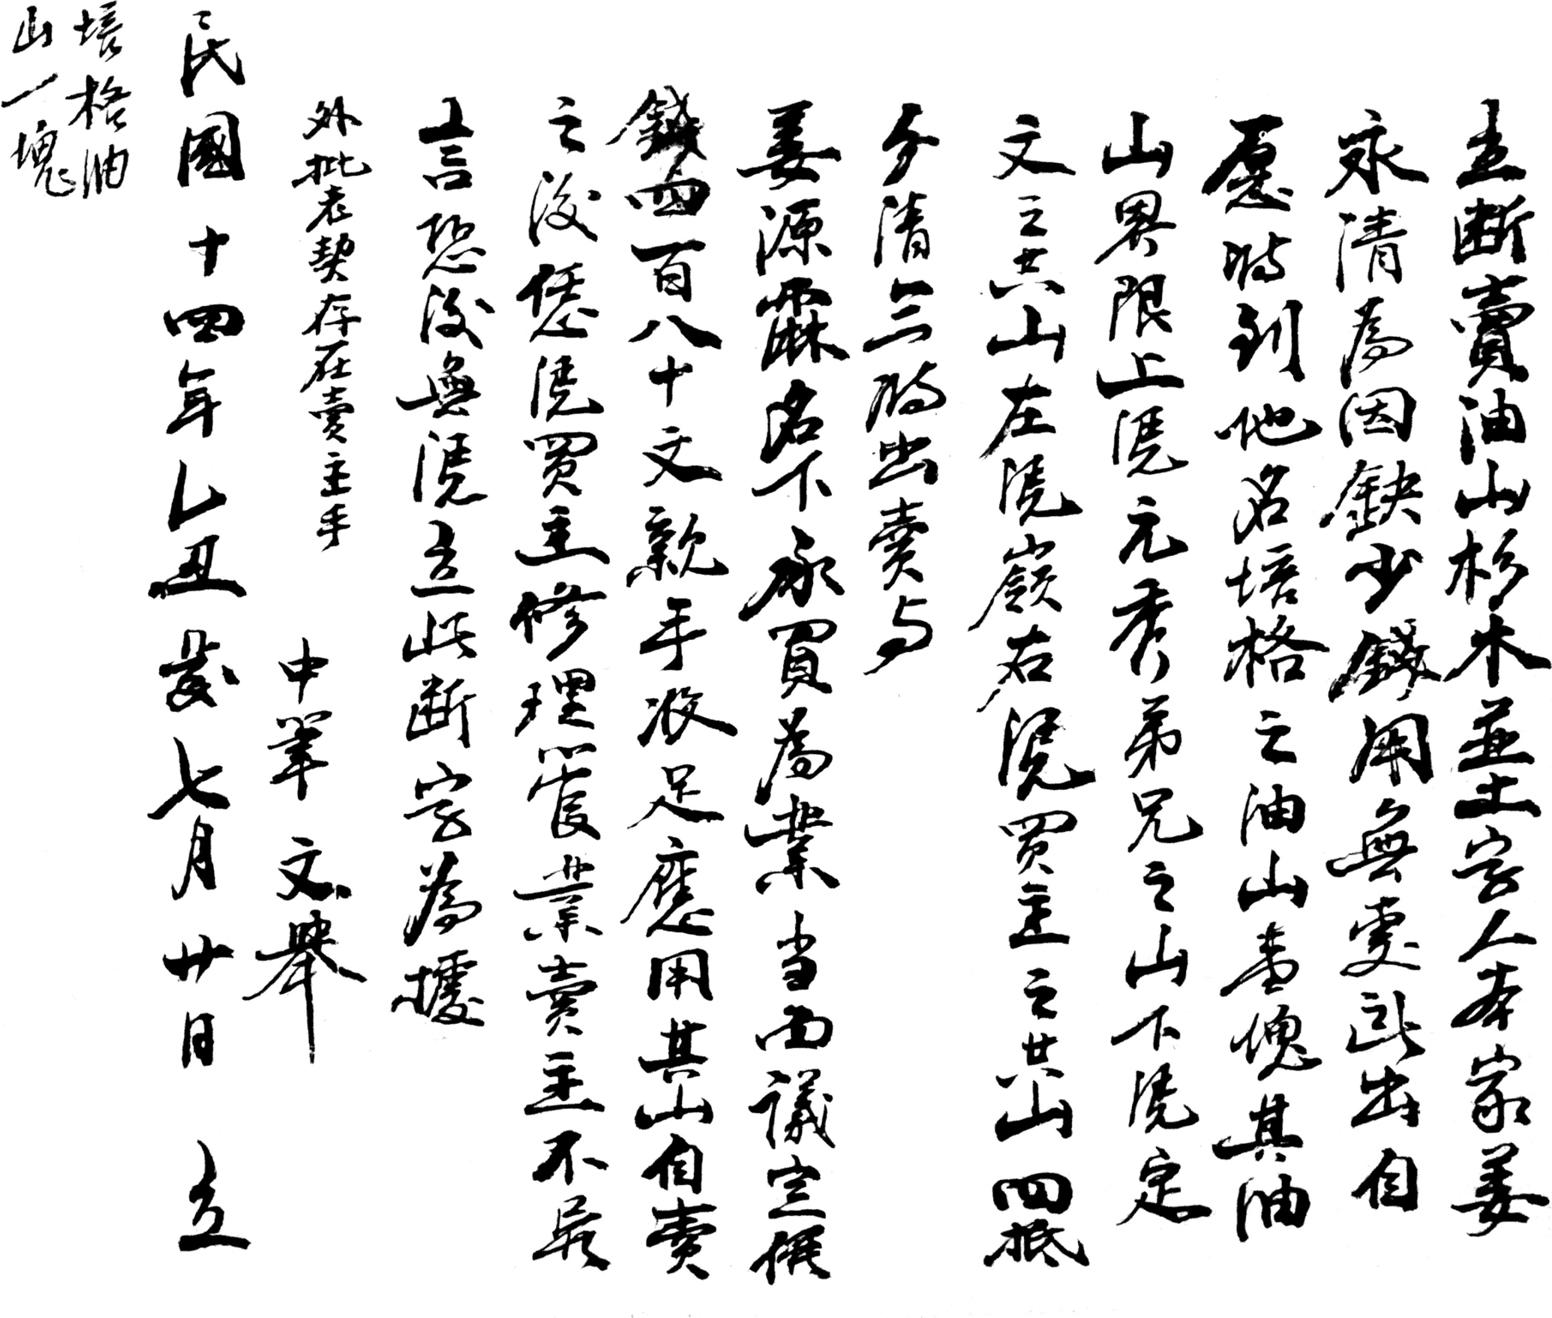 立断賣油山杉木並土字人本家姜
永清為因缺少錢用無處所出自
愿將到地名培格之油山壹塊其油
山界限上凭元秀弟兄之山下凭定
文之共山左凭嶺右凭買主之共山四抵
分清今將出賣与
姜源霖名下承買為業当面議定價
錢四百八十文親手收足應用其山自賣
之後恁凭買主修理管業賣主不異
言恐後無凭立此断字為據
外批老契存在賣主手
中筆 文舉
民國十四年乙丑歲七月廿日 立
培格油
山一塊